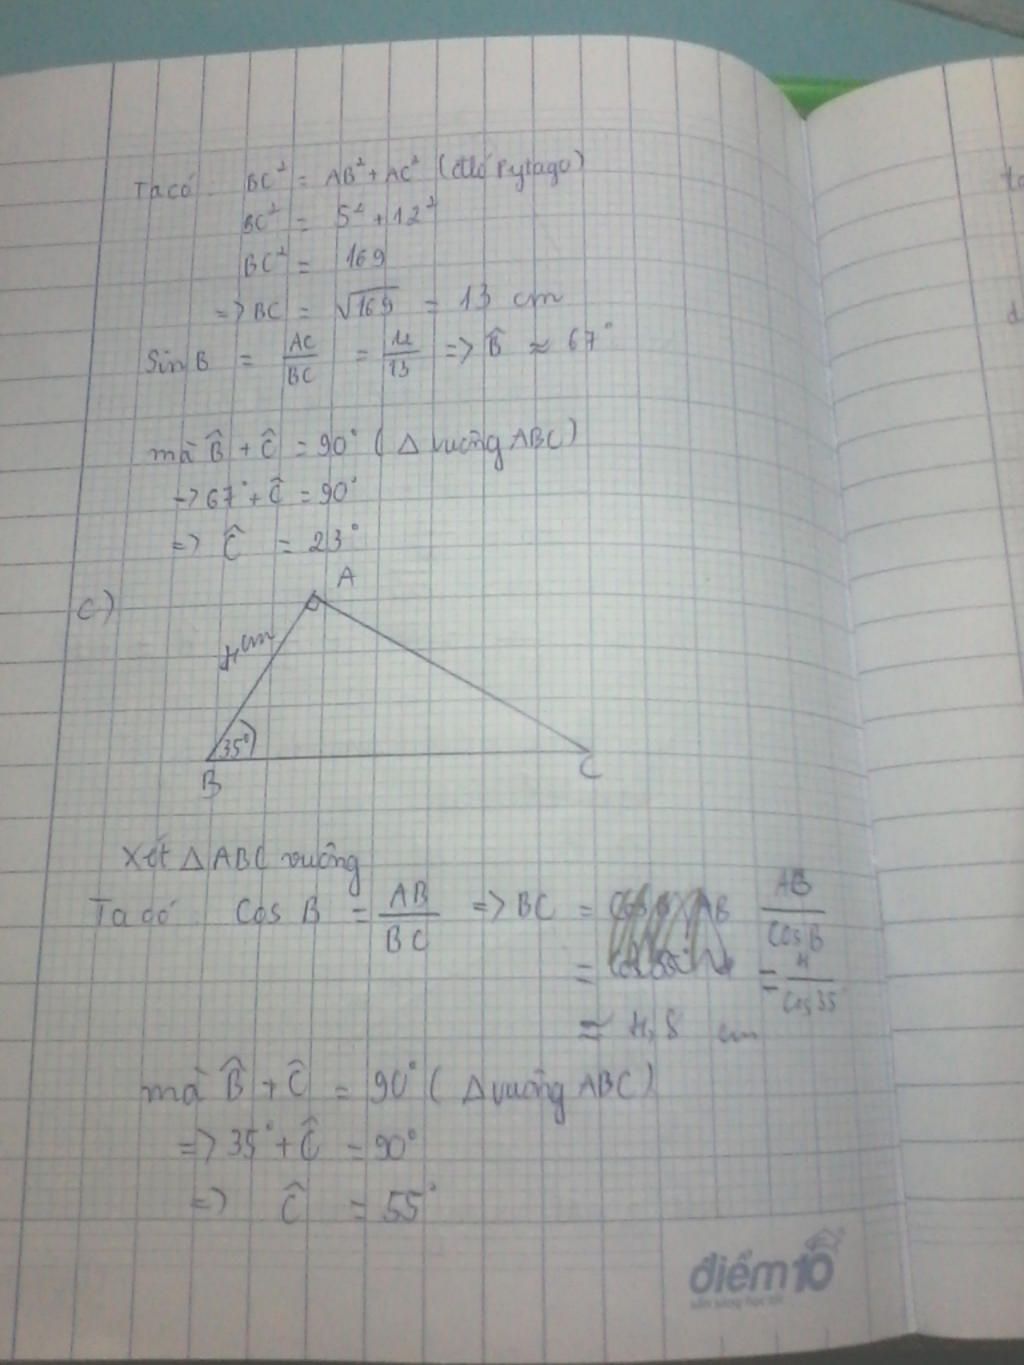 Ta có: BC² = AB² + AC² (đ.lí Pytago)
BC² = 5² + 12²
BC² = 169
=> BC = √169 = 13 cm
Sin B = AC/BC = 12/13 => B̂ ≈ 67°
mà B̂ + Ĉ = 90° (Δ vuông ABC)
=> 67° + Ĉ = 90°
=> Ĉ = 23°
c)
A
4 cm
35°
B
C
Xét Δ ABC vuông
Ta có Cos B = AB/BC => BC = AB/Cos B
= 4/Cos 35°
≈ 4,8 cm
mà B̂ + Ĉ = 90° (Δ vuông ABC)
=> 35° + Ĉ = 90°
=> Ĉ = 55°
điểm10